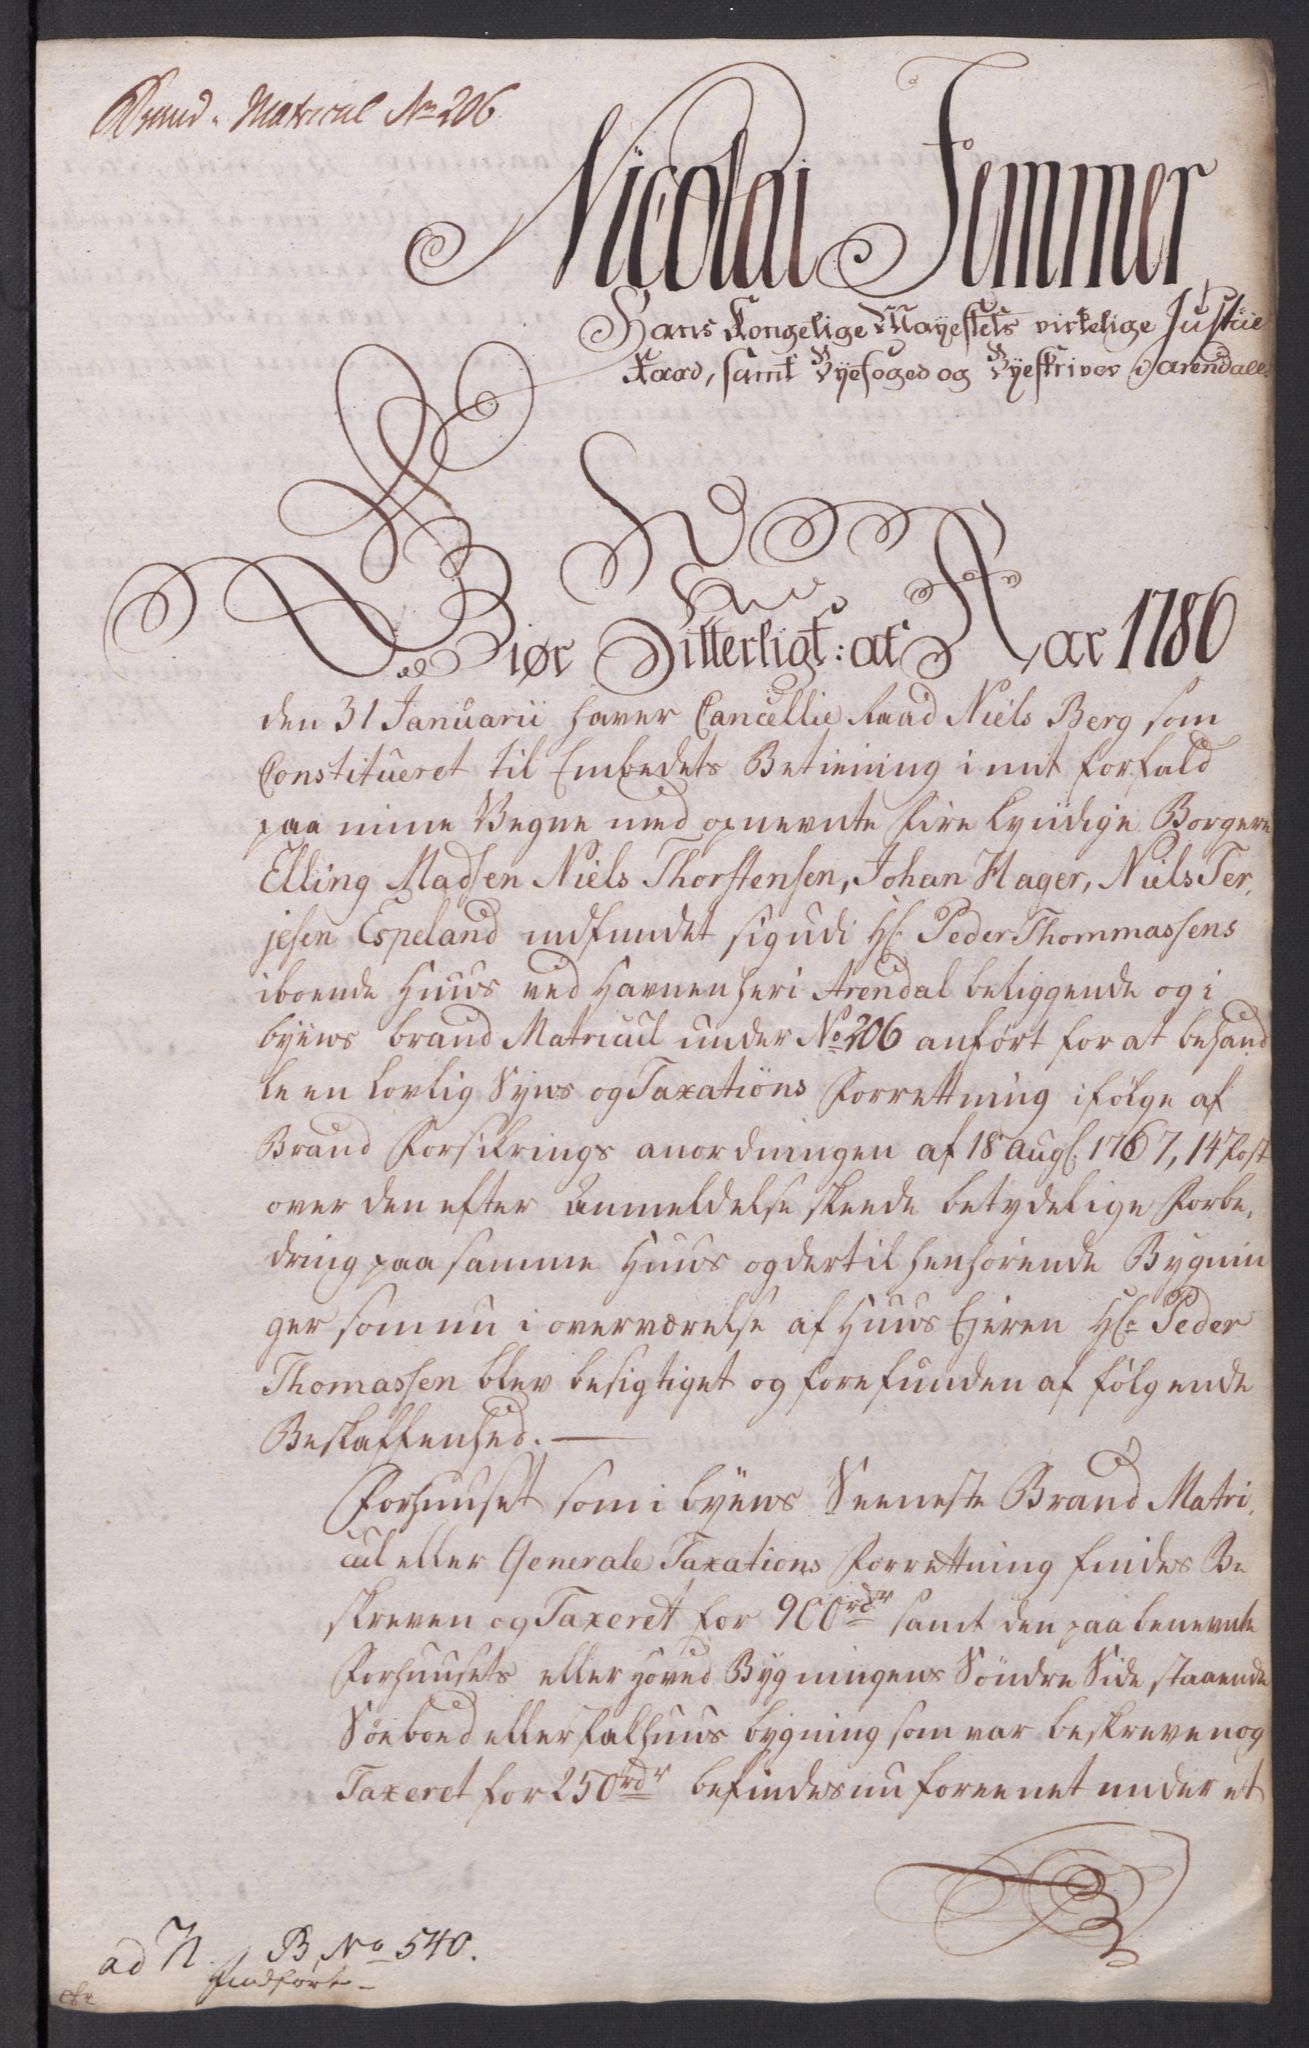 Brand-Matricul No 206
Nicolai Femmer
Hans Kongelige Mayestets virkelige Justiie
Raad, samt Byefoged og Byeskriver i Arendall
Giør Vitterligt: at Aar 1786
den 31 Januarii haver Cancellie Raad Niels Berg som
Constitueret til Embedets Betiening i mit Forfald
paa mine Vegne med opnevnte fire kyndige Borgere
Elling Madsen Niels Thorstensen, Johan Hager, Niels Ter,
jesen Espeland indfundet sig udi Hr. Peder Thommassens
iboende Huus ved Havnen her i Arendal beliggende og i
byens brand Matricul under No 206 anført for at behand
le en lovlig Syns og Taxations Forrettning ifølge af
Brand Forsikrings anordningen af 18 Aug. 1767, 14 Post
over den efter Anmeldelse skeede betydelige Forbe,
dring paa samme Huus og dertil henhørende Bygnin
ger som nu i overværelse af Huus Ejeren Hr. Peder
Thomassen blev besigtiget og forefunden af følgende
Beskaffenhed.
Forhuuset som i byens Seeneste Brand Matri,
cul eller Generale Taxations Forrettning findes Be
skreven og Taxeret for 900 rdr samt den paa benevnte
Forhuusets eller Hoved Bygningens Søndre Side staaende
Søeboed eller bygning som var beskreven og
Taxeret for 250 rdr befindes nu foreenet under et
ad N. B, No 540.
Indført